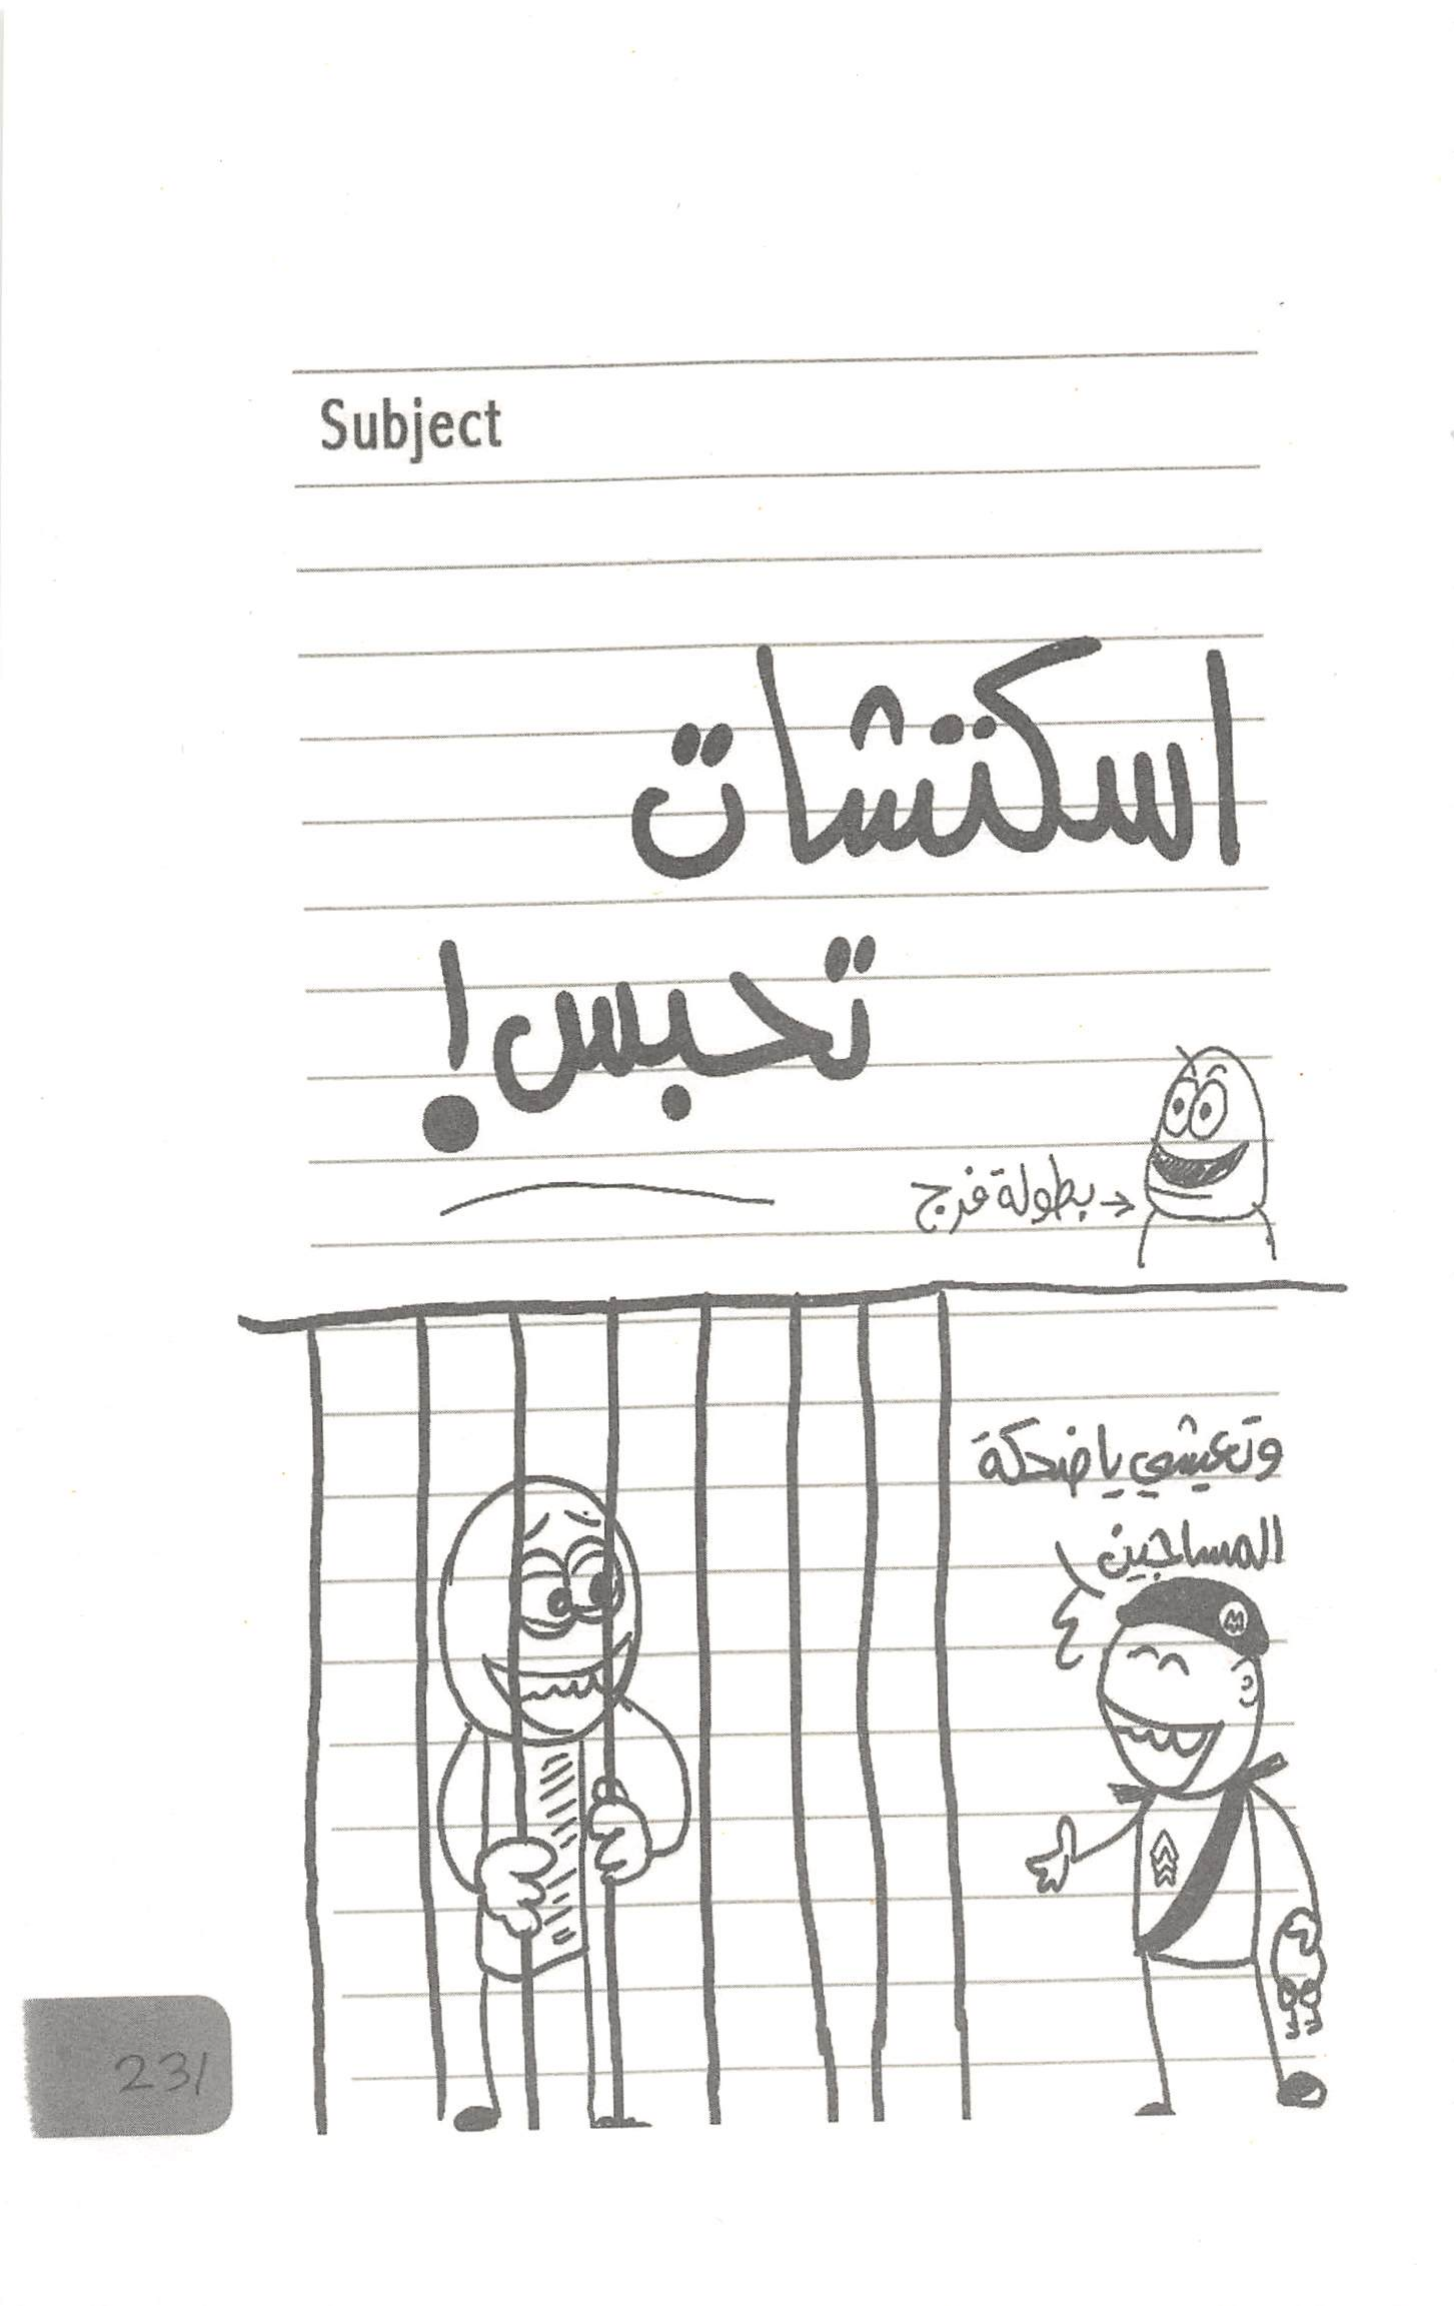 Subject
اسكتشات
تحبس!
بطولة فرج
وتعيشي يا ضحكة
المساجين
M
231